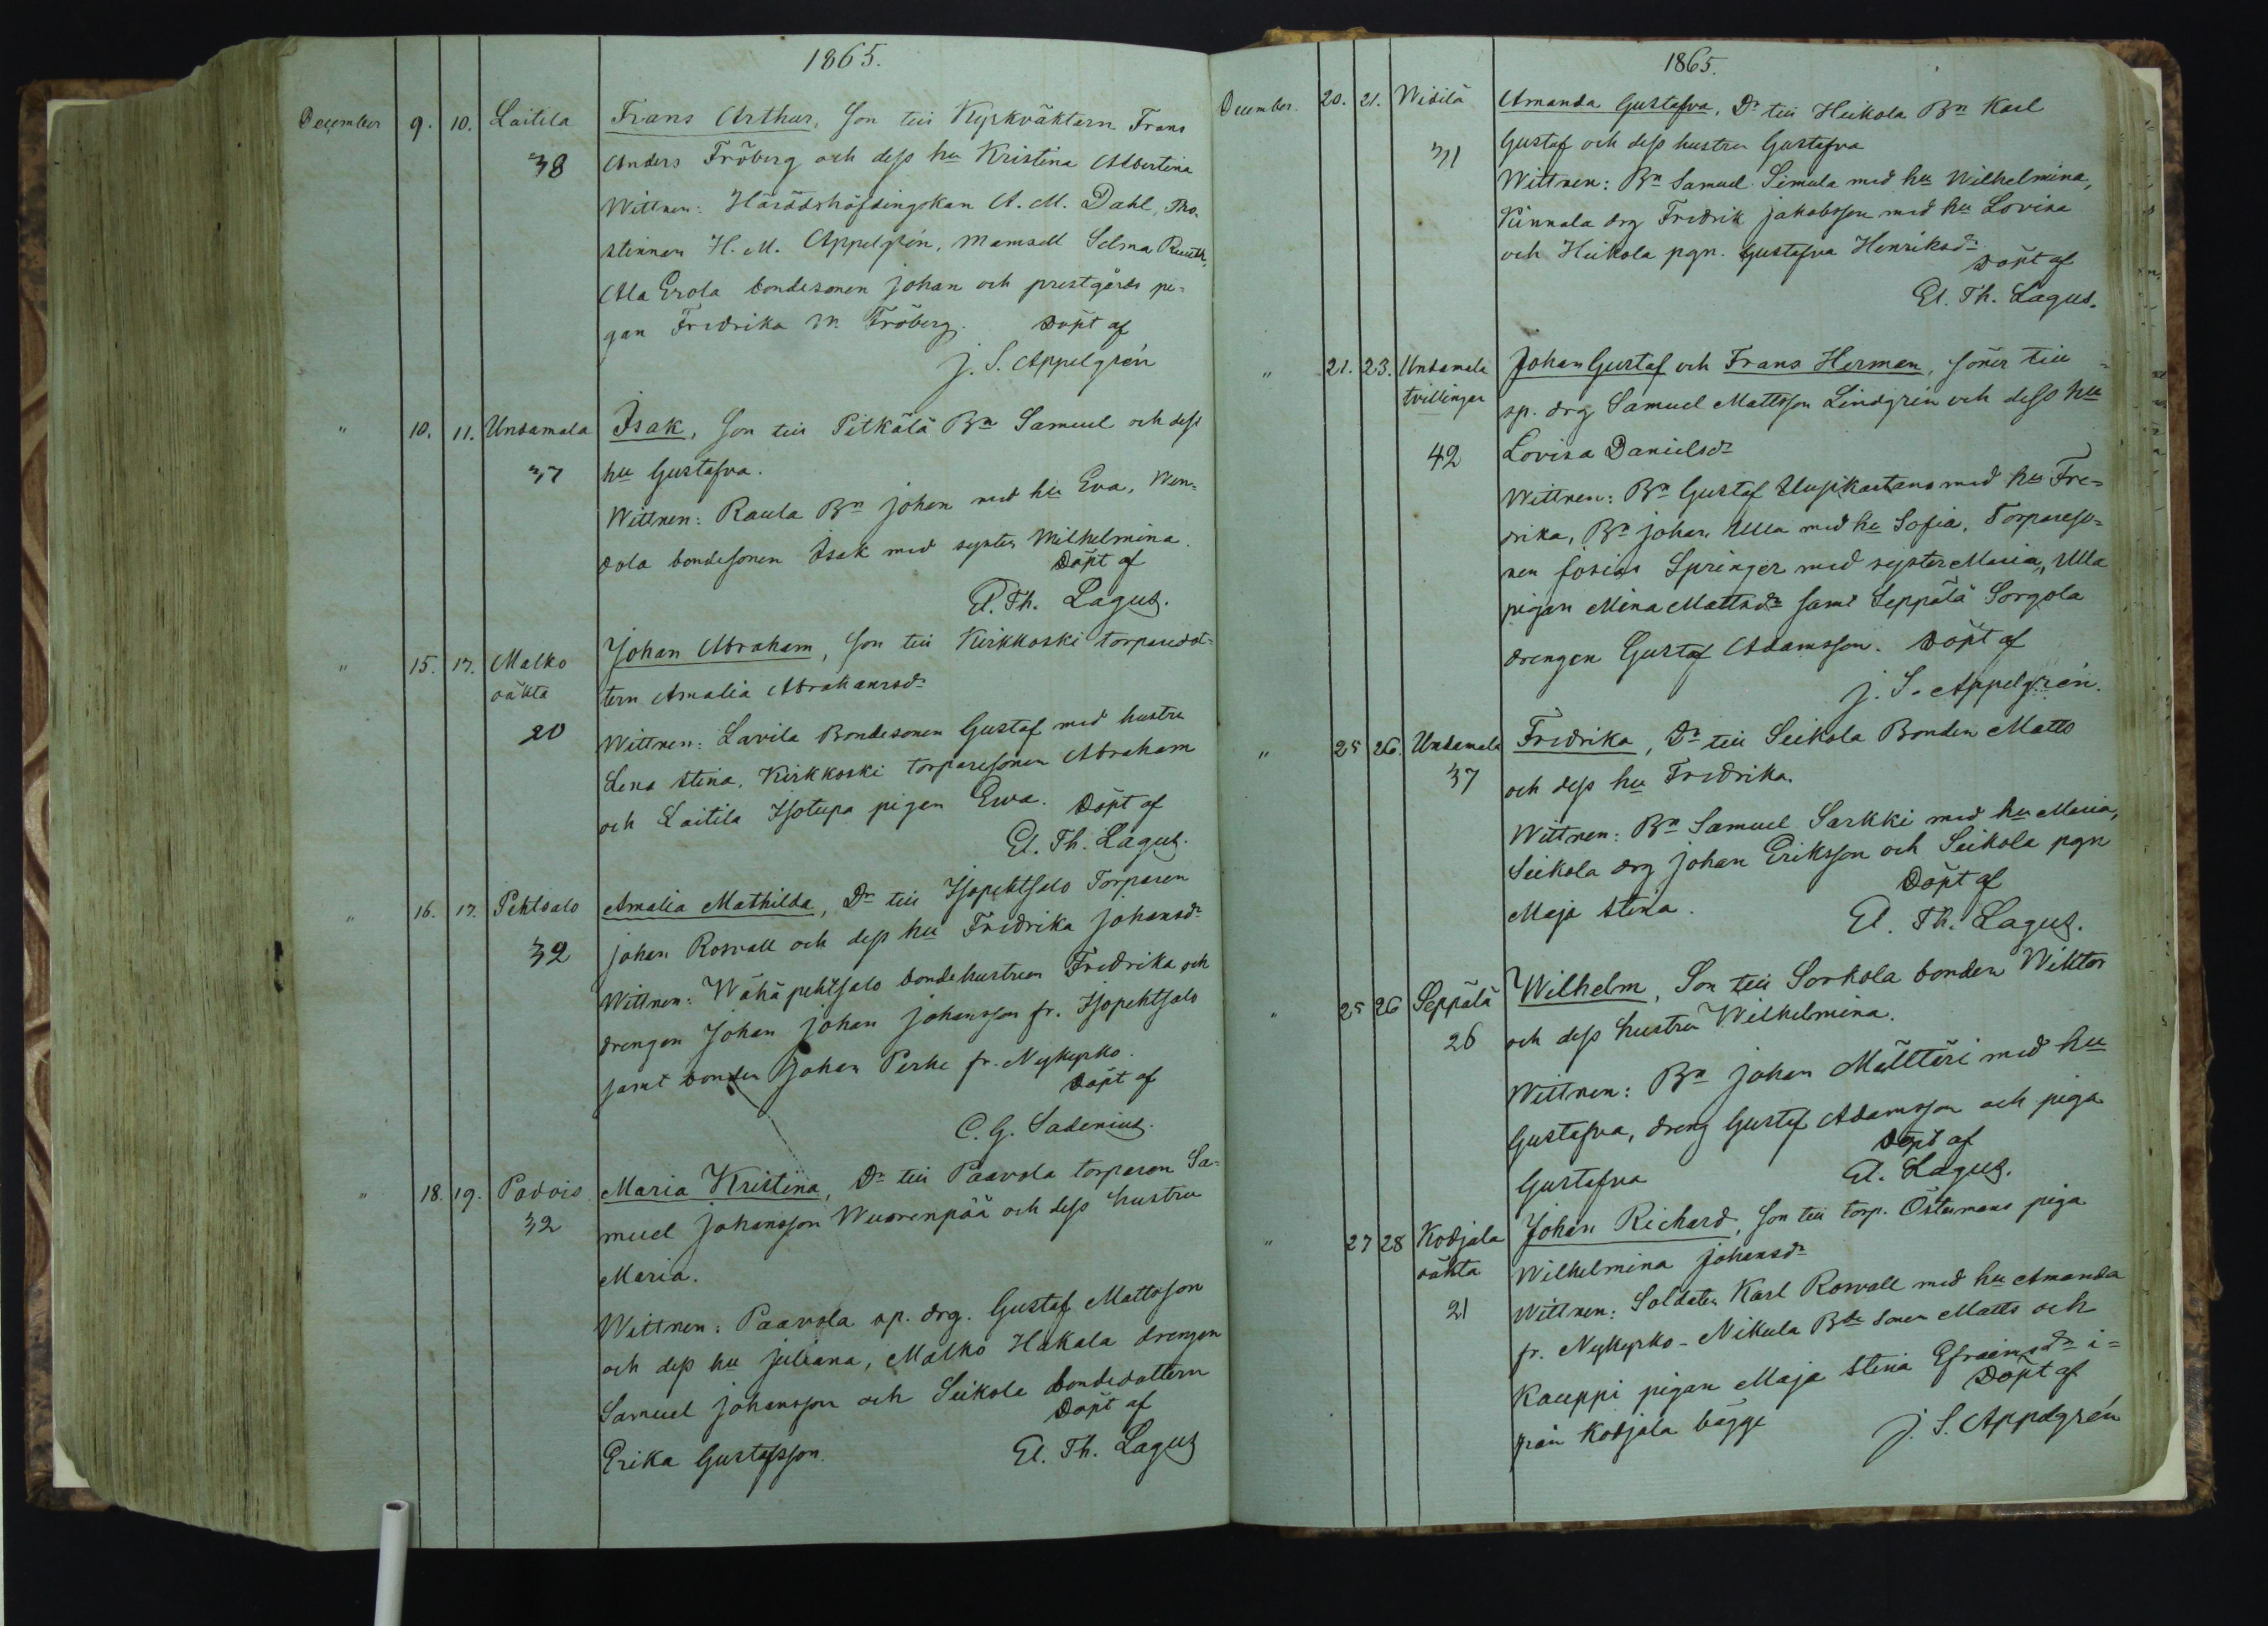 1865.
December 9. 10. Laitila Frans Arthur, Son till Kyrkväktarn Frans
38 Anders Fröberg och dess hu Kristina Albertina
Wittnen: Häradshöfdingskan A. M. Dahl, Pro-
stinnan H. M. Appelgrén, Mamsell Selma
Ala Erola bondesonen Johan och prestgårds pi-
gan Fredrika M Fröberg. Döpt af
J. S. Appelgrén
" 10. 11. Untamala Isak, Son till Pitkälä Bn Samuel och dess
37 hu Gustafva.
Wittnen: Raula Bn Johan med hu Eva, Wen-
dola bondesonen Isak med syster Wilhelmina.
Döpt af
El. Th. Lagus.
" 15. 17. Malko Johan Abraham, Son till Kirkkoski torparedot-
oäkta tern Amalia Abrahamsdr
20 Wittnen: Lavila Bondesonen Gustaf med hustru
Lena Stina, Kirkkoski torparesonen Abraham
och Laitila Isotupa pigan Ewa. Döpt af
El. Th. Lagus.
" 16. 17. Pehtsalo Amalia Mathilda, Dr till Isopehtsalo Torparen
32 Johan Roswall och dess hu Fredrika Johansdr
Wittnen: Wähäpehtsalo bondehustrun Fredrika och
drengen Johan Johan Johansson fr. Isopehtsalo
samt bonden Johan Perhe fr. Nykyrko.
Döpt af
C. G. Sadenius.
" 18. 19. Padois Maria Kristina, Dr till Paavola torparen Sa-
32 muel Johansson Wuorenpää och dess hustru
Maria.
Wittnen: Paavola sp. drg. Gustaf Mattsson
och dess hu Juliana, Malko Hakala drengen
Samuel Johansson och Seikola bondedottern
Döpt af
Erika Gustafsson. El. Th. Lagus
1865.
December. 20. 21. Widilä Amanda Gustafva, Dr till Heikola Bn Karl
31 Gustaf och dess hustru Gustafva
Wittnen: Bn Samuel Simula med hu Wilhelmina,
Kinnala drg Fredrik Jakobsson med hu Lovisa
och Heikola pgn. Gustafva Henriksdr
Döpt af
El. Th. Lagus.
" 21. 23. Untamala Johan Gustaf och Frans Herman, Söner till
tvillingar sp. drg Samuel Mattsson Lindgrén och dess hu
42 Lovisa Danielsdr
Wittnen: Bn Gustaf Uusikartano med hu Fre-
drika, Bn Johan Ulla med hu Sofia, Torpareso-
nen Josias Springer med syster Maria, Ulla
pigan Mina Mattsdr samt Seppälä Sorgola
drengen Gustaf Adamsson. Döpt af
J. S. Appelgrén.
" 25 26. Untamala Fredrika, Dr till Seikola Bonden Matts
37 och dess hu Fredrika.
Wittnen: Bn Samuel Sarkki med hu Maria,
Seikola drg Johan Eriksson och Seikola pgn
Maja Stina. Döpt af
El. Th. Lagus.
" 25 26 Seppälä Wilhelm, Son till Sorkola bonden Wiktor
26 och dess hustru Wilhelmina.
Wittnen: Bn Johan Mälttäri med hu
Gustafva, dreng Gustaf Adamsson och piga
Döpt af
Gustafva El. Lagus.
" 27 28 Kodjala Johan Richard, Son till torp. Östermans piga
oäkta Wilhelmina Johansdr
21 Wittnen: Soldaten Karl Roswall med hu Amanda
fr. Nykyrko - Nikula Bde Sonen Matts och
Kauppi pigan Maja Stina Efraimsdr i-
Döpt af
från Kodjala bägge
J. S. Appelgrén